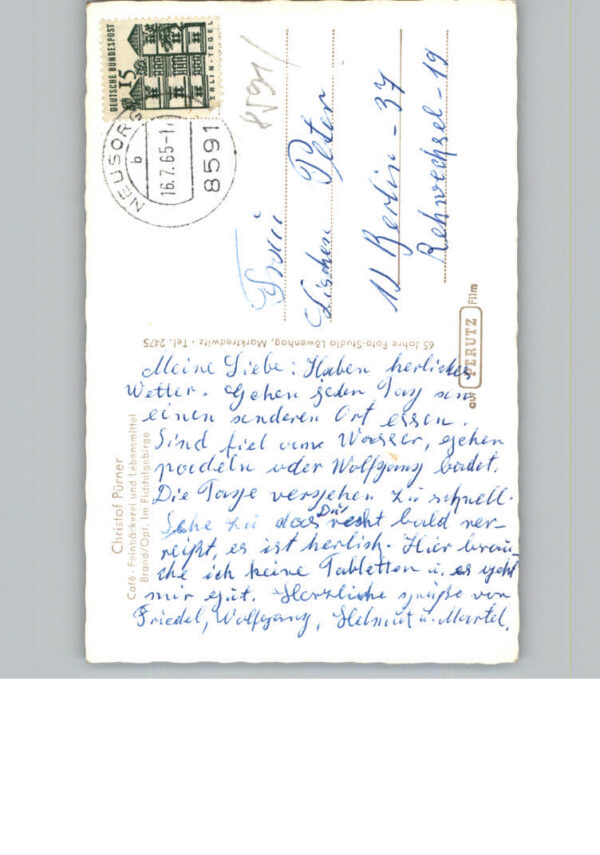 DEUTSCHE BUNDESPOST
15
BERLIN-TEGEL
NEUSORG
b
16.7.65-17
8591
8591/
Frau
Lischen Peter
1 Berlin-37
Rehwechsel-19
65 Jahre Foto-Studio Löwenhag, Marktredwitz · Tel. 2475
auf PERUTZ Film
Christof Pürner
Café · Feinbäckerei und Lebensmittel
Brand/Opf. im Fichtelgebirge
Meine Liebe: Haben herliches
Wetter. Gehen jeden Tag an
einen anderen Ort essen.
Sind fiel ame Wasser, gehen
padeln oder Wolfgang badet.
Die Tage vergehen zu schnell.
Sehe zu das Du recht bald ver-
reißt, es ist herlich. Hier brau-
che ich keine Tabletten u. es geht
mir gut. Herzliche grüße von
Friedel, Wolfgang, Helmut u. Martel.